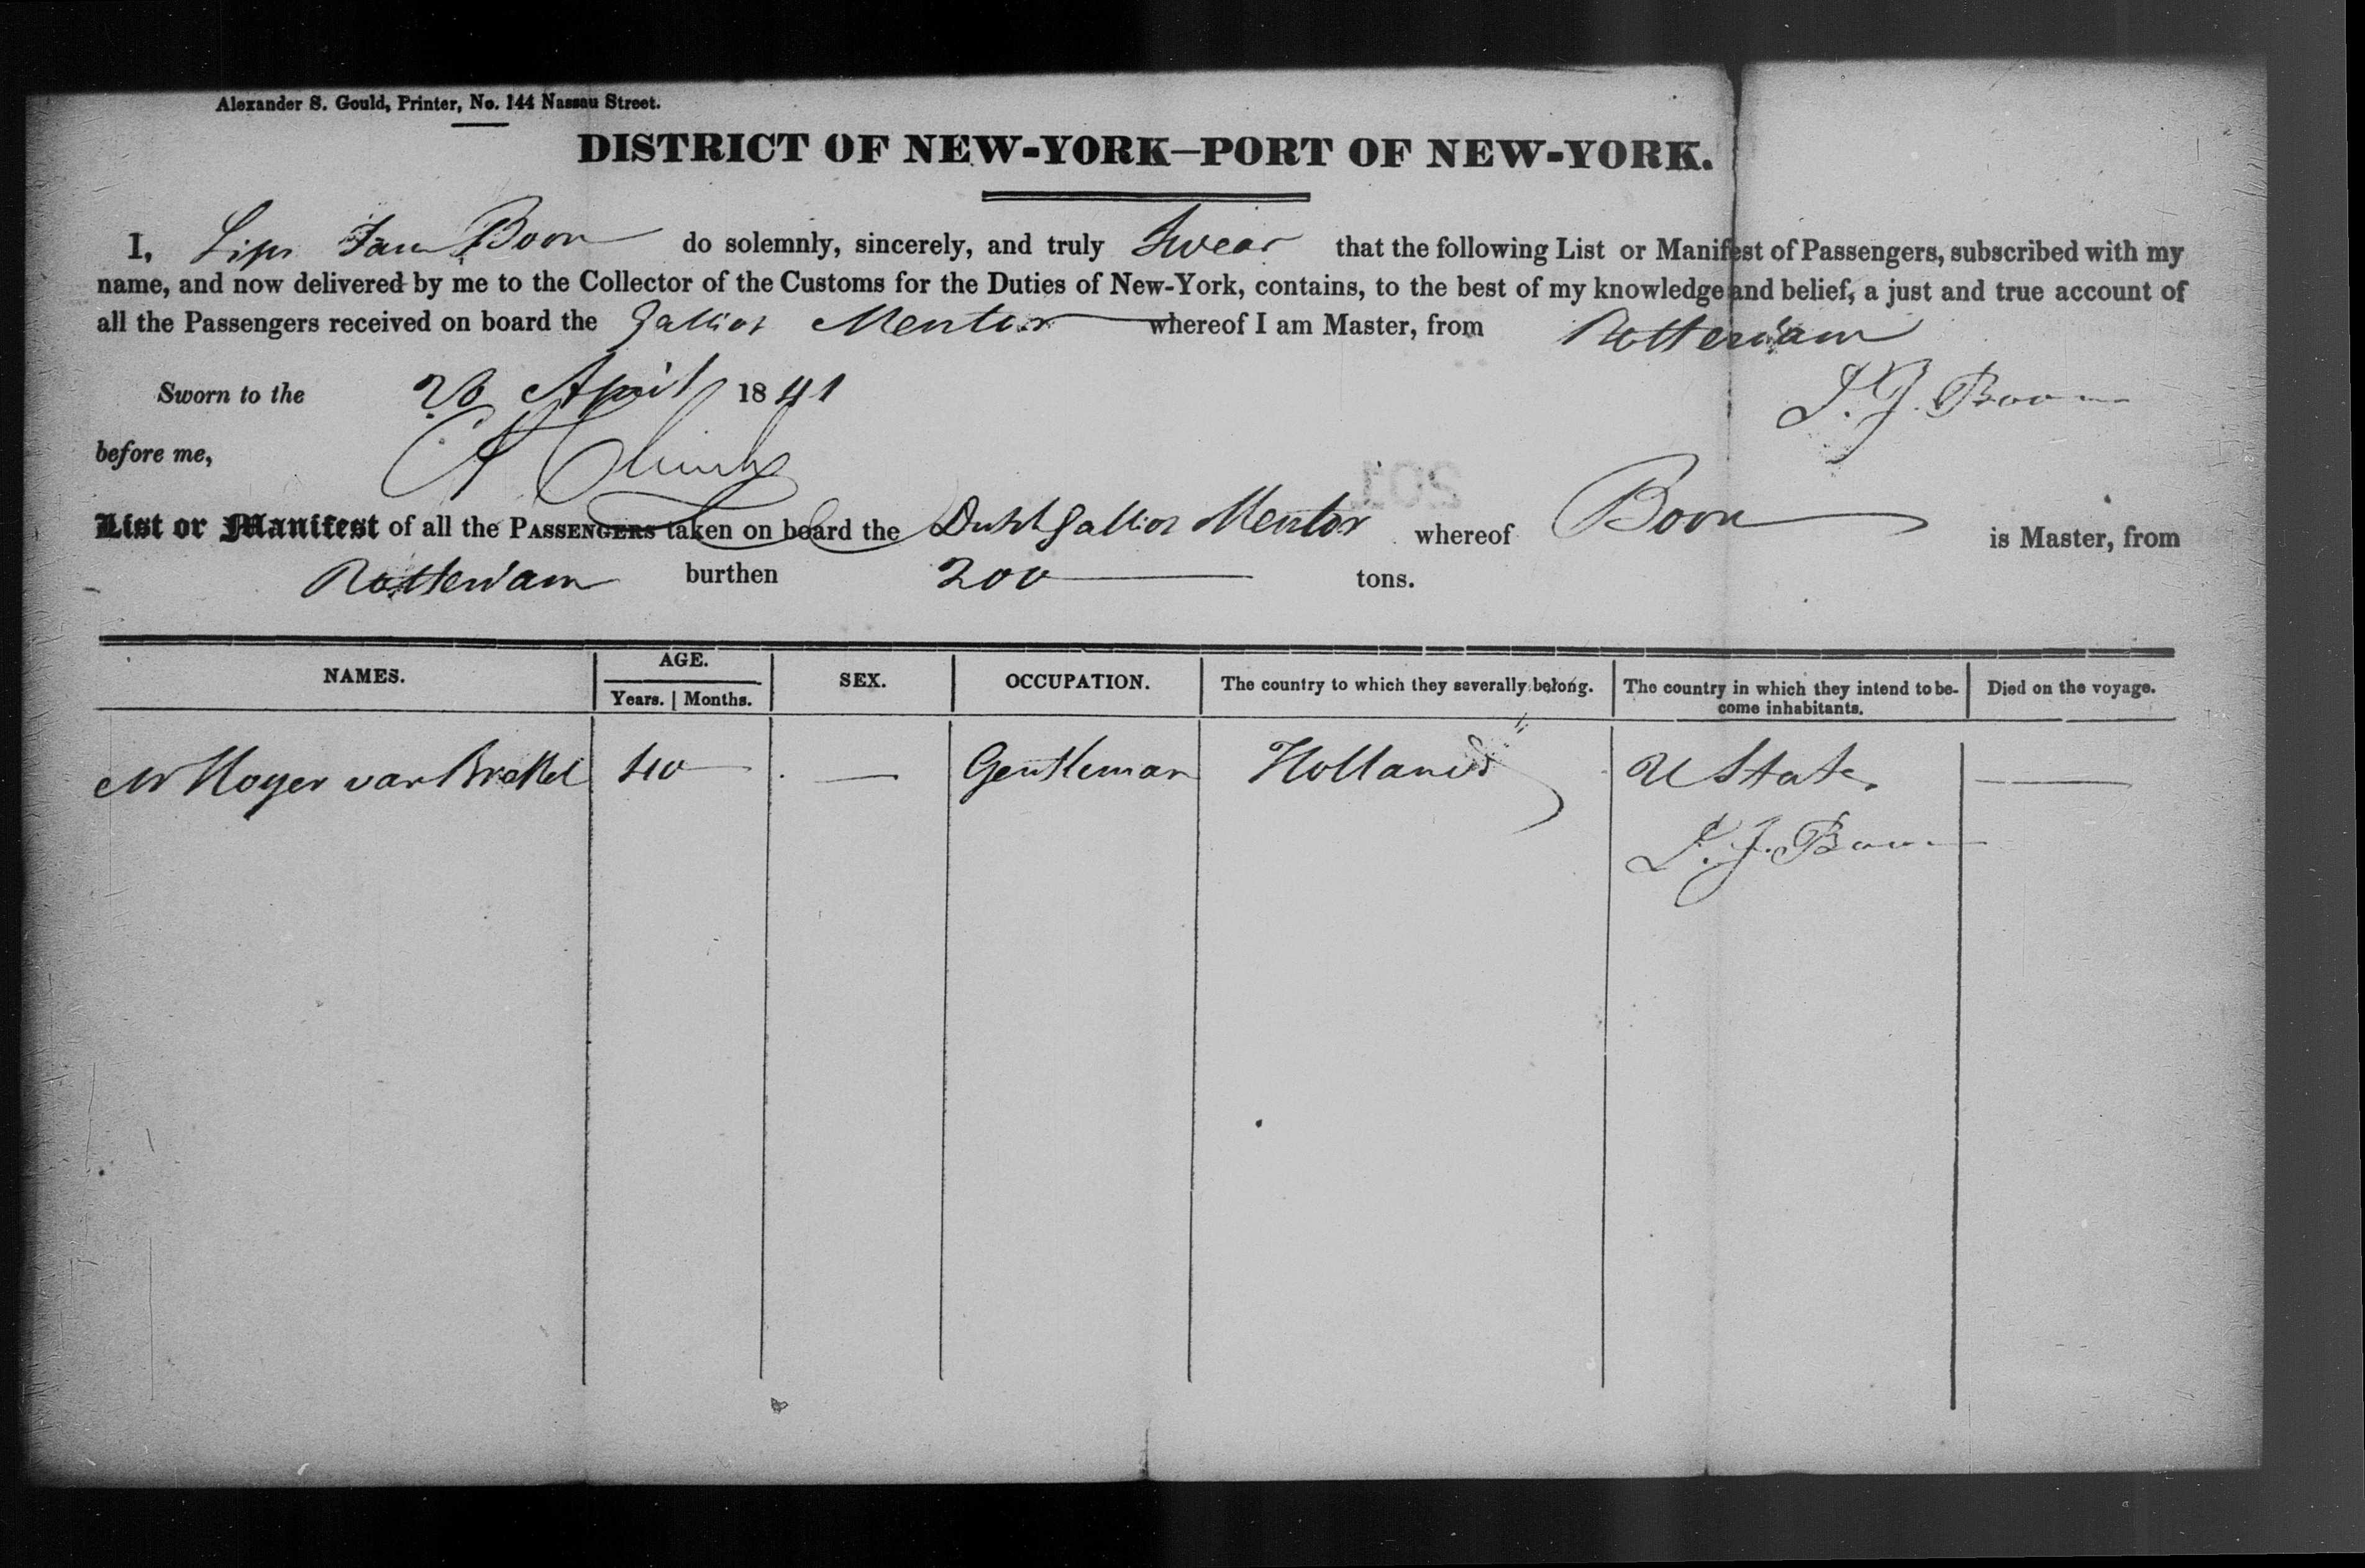 Alexander S. Gould, Printer, No. 144 Nassau Street.
DISTRICT OF NEW-YORK—PORT OF NEW-YORK.
I, Boon do solemnly, sincerely, and truly Swear that the following List or Manifest of Passengers, subscribed with my
name, and now delivered by me to the Collector of the Customs for the Duties of New-York, contains, to the best of my knowledge and belief, a just and true account of
all the Passengers received on board the Galliot Mentor whereof I am Master, from Rotterdam
Sworn to the April 1841
L. J. Boon
before me,
201
List or Manifest of all the PASSENGERS taken on board the Dutch Galliot Mentor whereof Boon is Master, from
Rotterdam burthen 200 tons.
NAMES. AGE. Years. Months. SEX. OCCUPATION. The country to which they severally belong. The country in which they intend to become inhabitants. Died on the voyage.
Mr Hoyer van Brakel 40 — Gentleman Holland U States —
L. J. Boon